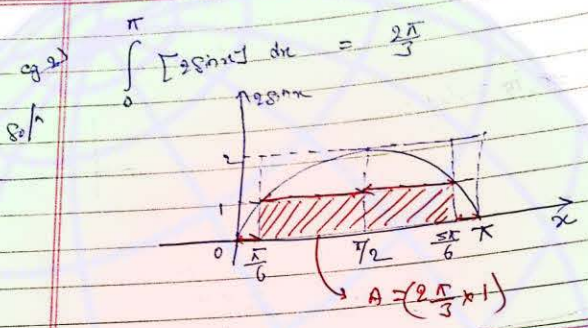 eg 2> ∫₀^π [2sinx] dx = 2π/3
solⁿ
2sinx
2
1
0 π/6 π/2 5π/6 π x
A = (2π/3 × 1)